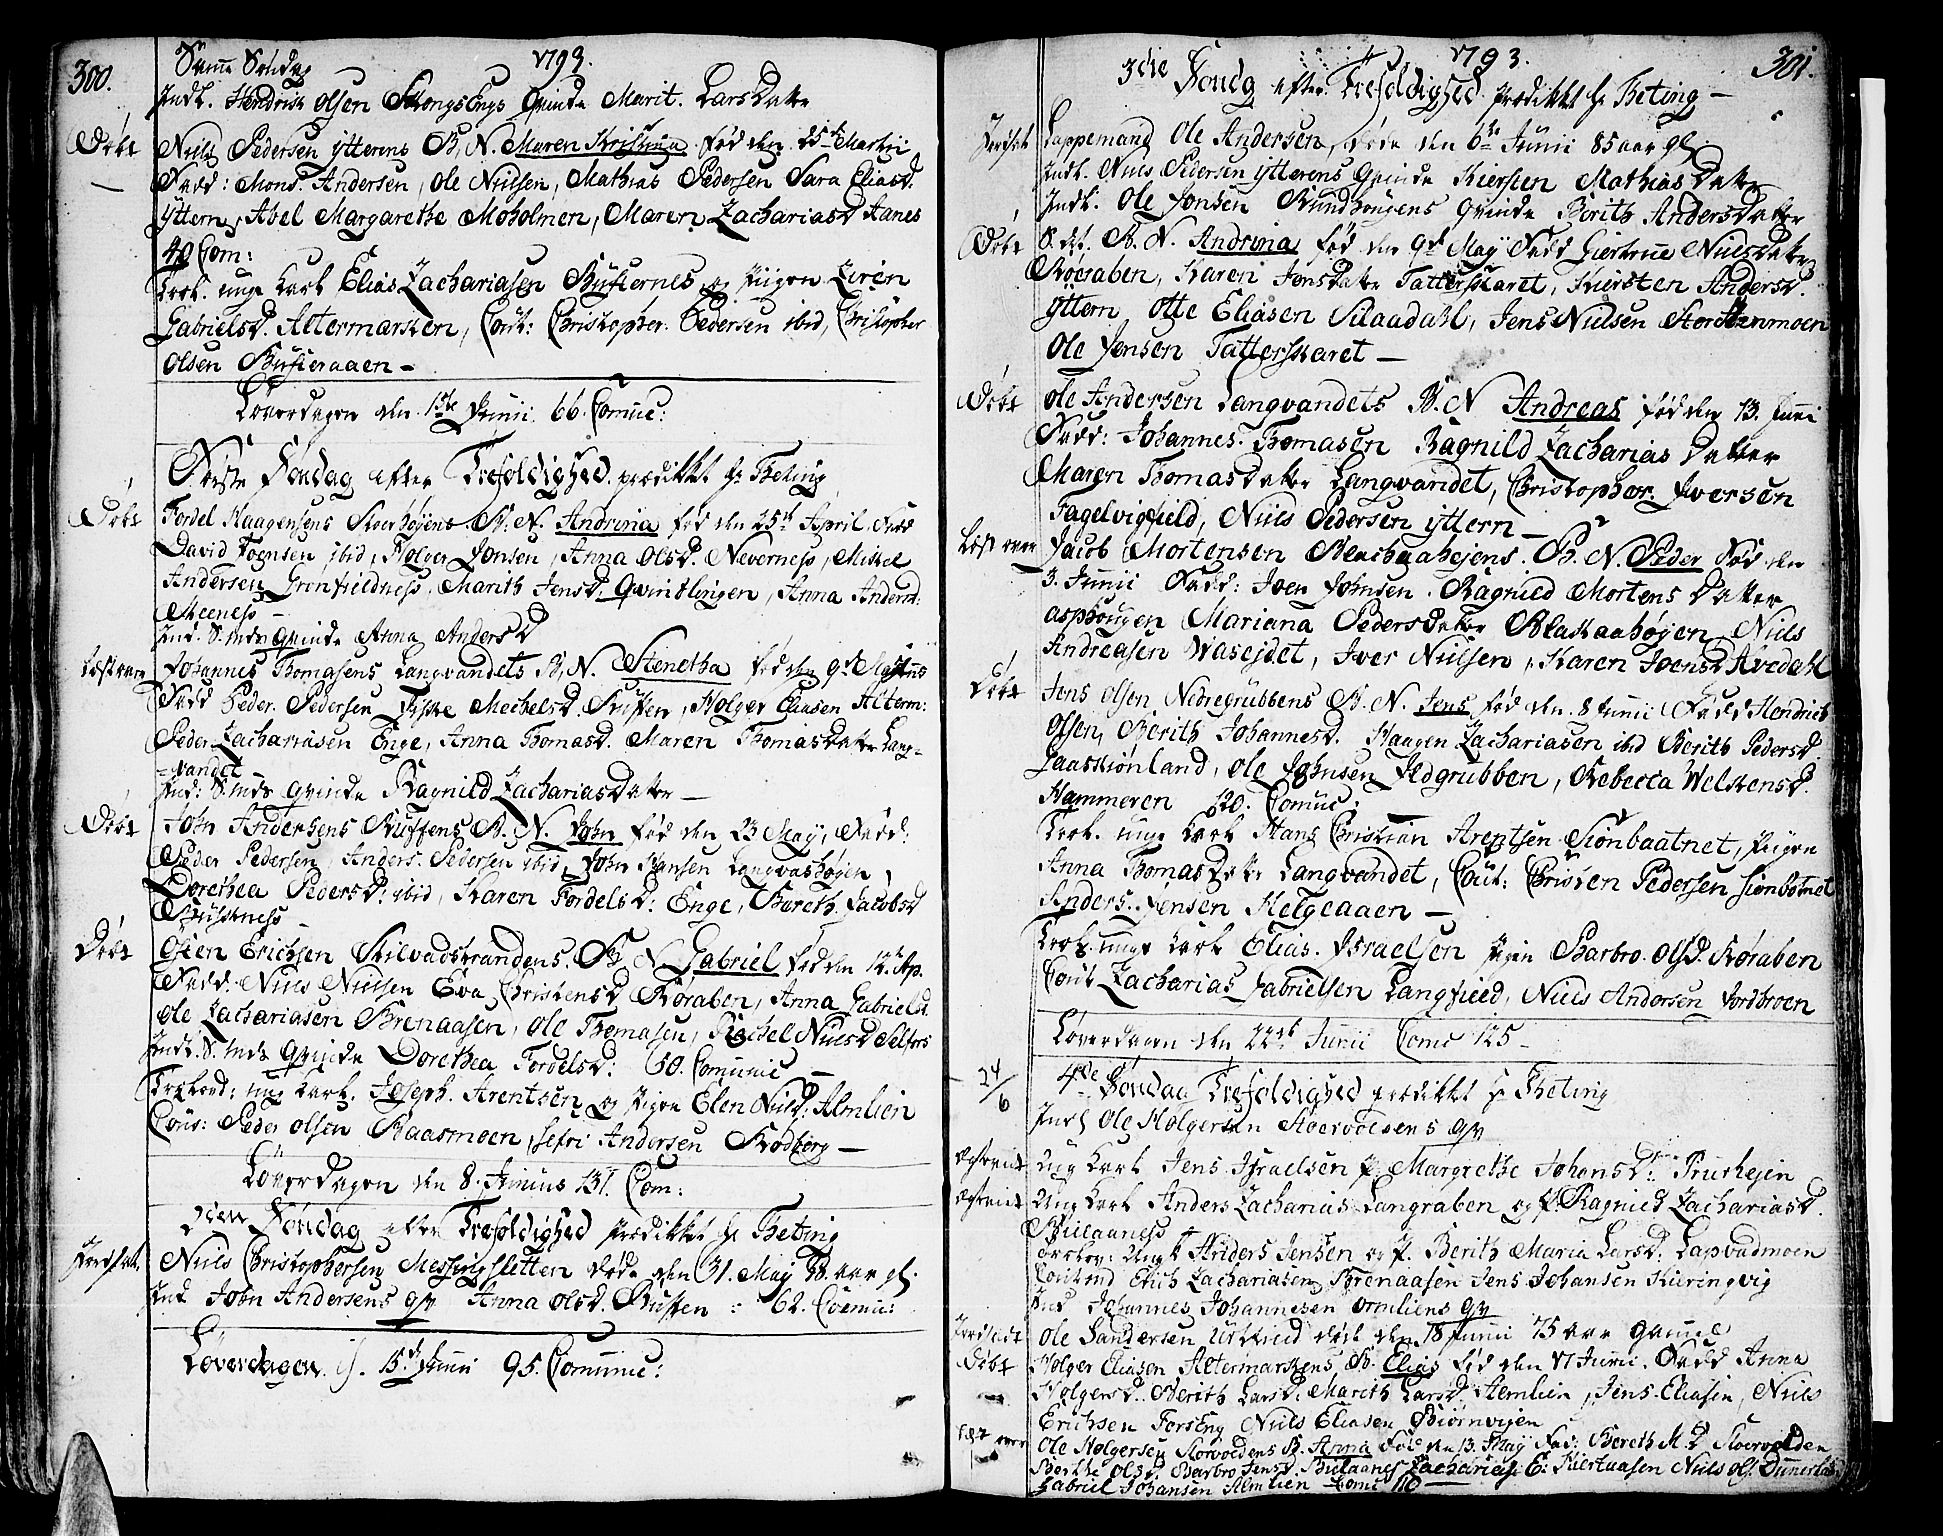 300.
Samme Søndag
1793.
Indl. Hendrich Olsen Selvogs Engs Qvinde Marit. Lars Datter
Døbt
Niels Pedersen ytterens B. N. Maren Kristina fød den 25de Martii
Fadd: Mons. Andersen, Ole Nielsen, Mathias Pedersen Sara Eliasd.
yttern, Abel Margarethe Moholmen, Maren Zachariasd Aanes
40 Com:
Trol. unge Karl Elias Zachariasen Busternes, og Pigen Ziren
Gabrielsd. Altermarken, Cout: Christopher Pedersen ibid, Christopher
Olsen Busteraaen -
Løverdagen den 1ste Junii 66. Comuc:
Første Søndag efter Trefoldighed prædikket Hr Theting
Døbt
Fordel Haagensens Stoerhøjens B. N. Andrina fød den 25de April Fad
David Toensen ibid, Holger Jonsen, Anna Olsd. Neverness, Mikel
Andersen Grønfieldness, Marith Jensd. Qvintlingen, Anna Andersd:
Meeness -
Ind. S. mds Qvinde Anna Andersd
Læst over
Johannes Thomasens Langvandets B. N. Stenetha fød den 9de Majus
Fadd Peder Pedersen Mechelsd. Holger Eliasen Alterm:
Peder Zachariasen Enge, Anna Thomasd. Maren Thomasdatter Lang-
=vandet
Ind: S. mds Qvinde Ragnild Zachariasdatter -
Døbt
John Andersens Ruffens B. N. John fød den 23 May, Fadd:
Peder Pedersen, Anders Pedersen ibid, John Hansen Langvashøgen,
Dorethea Pedersd: ibid, Karen Fordelsd: Enge, Bereth Jacobsd
Døbt
Osten Erichsen Skilvadstrandens B N Gabriel fød den 12te Ap.
Fadd: Niels Nielsen Eva Christensd Røraben, Anna Gabrielsd.
Ole Zachariasen Brenaasen, Ole Thomasen, Rachel Nielsd Selfors
Indl. S. mds Qvinde Dorethea Fordelsd: 60. Comunic -
Trolovd: ung Karl. Joseph. Arentsen og Pigen Elen Nielsd: Almlien
Cout: Peder Olsen Raasmoen, Andersen Rødberg -
Løverdagen den 8. Junius 131. Com:
2den Søndag efter Trefoldighed prædikket Hr Theting
Jordfæst.
Niels Christophersen Messingsletten døde den 31. May 38. aar gl.
Ind John Andersens qv Anna Olsd. : 62. Comu:
Løverdagen. d. 15de Junii 95. Comunic:
301.
1793.
3die Søndg efter Trefoldighed Prædikket Hr Theting -
Jordfæst
Lappemand Ole Andersen, døde den 6te Junii 85 aar gl.
Indl. Niels Pedersen ytterens Qvinde Kiersten Mathias Datter
Indl. Ole Jonsen Rundhougens Qvinde Berith Anders Datter
Døbt
S. dt. B. N. Andrina fød den 9de May Fadd Giertrue Niels Datter
Røeraben, Karen Jonsdatter Tatterskaret, Kiersten Andersd.
yttern Otte Eliasen Silaadahl, Jens Nielsen Storstenmoen
Ole Jonsen Tatterskaret -
Døbt
Ole Andersen Langvandets B. N Andreas fød den 13. Junii
Fadd: Johannes Thomasen Ragnild Zacharias Datter
Maren Thomas Datter Langvandet, Christopher Iversen
Fagelvigfield, Niels Pedersen yttern -
Læst over
Jacob Mortensen Blachaahejens B. N. Peder Fød den
3. Junii Fadd: Joen Johnsen Ragnild Mortens Datter
asphougen Mariana Pedersdatter Blakaahøgen Niels
Andreasen Wasejdet, Iver Nielsen, Karen Joensd Avedahl
Døbt
Jens Olsen Nedregrubbens B. N. Jens fød den 8 Junii Fadd Hendrich
Olsen, Berith Johannesd. Haagen Zachariasen ibid Berith Pedersd.
Gaaskiønland, Ole Johnsen Jldgrubben, Rebecca Welskensd.
Hammeren 120. Comuc:
Trol. ung Karl Hans Christian Arentsen Siønbaatnet, Pigen
Anna Thomasdatter Langvandet, Cout: Christen Pedersen Siønbotnet
Anders Jensen Helgeaaen -
Trol. unge Karl Elias. Israelsen Pigen Barbro Olsd. Røraben
Cout Zacharias Gabrielsen Langfield, Niels Andersen Jordbroen
Løverdagen den 22de Junii Comc 125 -
24/6
4de Søndag Trefoldighed prædikket Hr Theting
Indl Ole Holgersen Stoervoldens qv
Ung Karl Jens Israelsen P. Margrethe Johansd: Prurhejen
Ung Karl Anders Zacharias Langraben og P. Ragnild Zachariasd.
Biellaaness
Trolov: Ungk Anders Jensen og P. Berith Maria Larsd. Lapvadmoen
Coutend Erich Zachariasen Brenaasen Jens Johansen Kieringvig
Ind Johannes Johannesen Ormliens qv
Jordfæst
Ole Sandersen Urtfield døde den 18 Junii 75 aar gammel
Døbt
Holger Eliasen Altermarkens B. Elias fød den 17 Junii. Fadd Anna
Holgersd. Berith Larsd. Mareth Larsd. Almlien, Jens Eliasen, Niels
Erichsen Forseng Niels Eliasen Biørnvigen
Læst over
Ole Holgersen Storvoldens B. Anna Fød den 13. May Fad: Bereth M. D Stoervolden
Berthe Olsd. Barbro Jensd. Bielaanes Zacharias E: Niels Ols. Dunerlab
Gabriel Johansen Almlien Comc 116 -